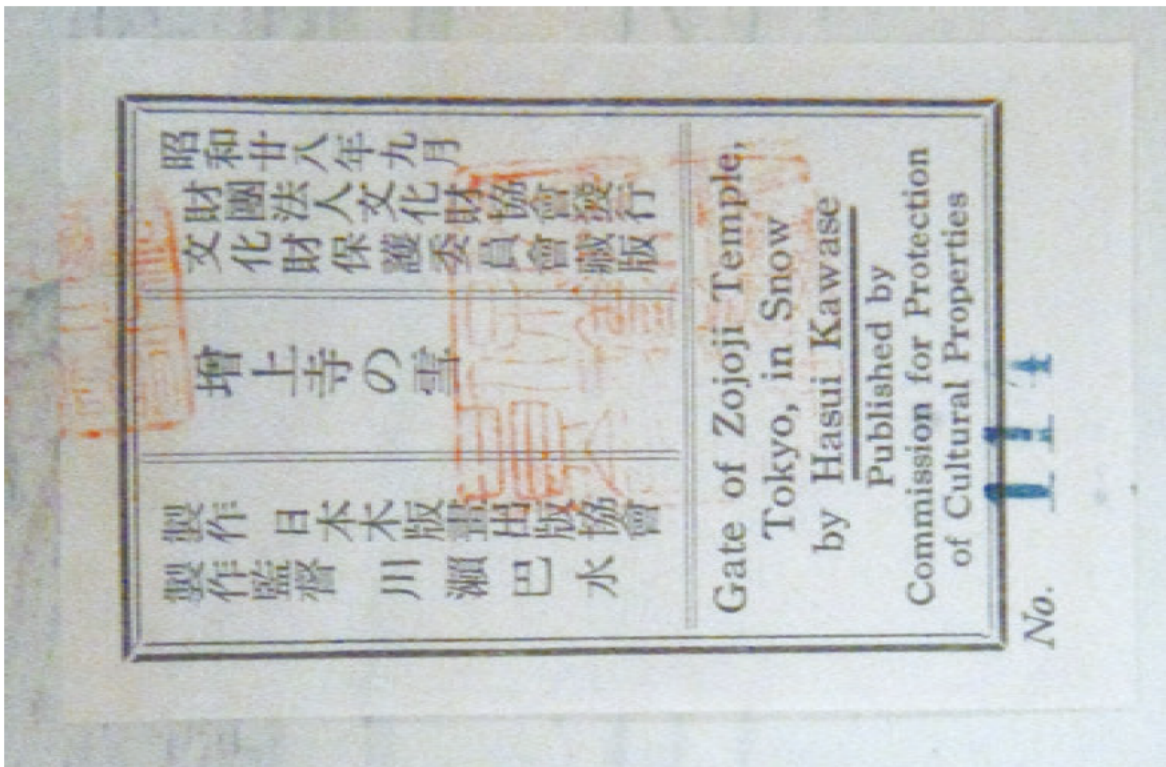 昭和廿八年九月
財團法人文化財協會發行
文化財保護委員會藏版
增上寺の雪
製作 日本木版畫出版協會
製作監督 川瀨巴水
Gate of Zojoji Temple,
Tokyo, in Snow
by Hasui Kawase
Published by
Commission for Protection
of Cultural Properties
No. 114